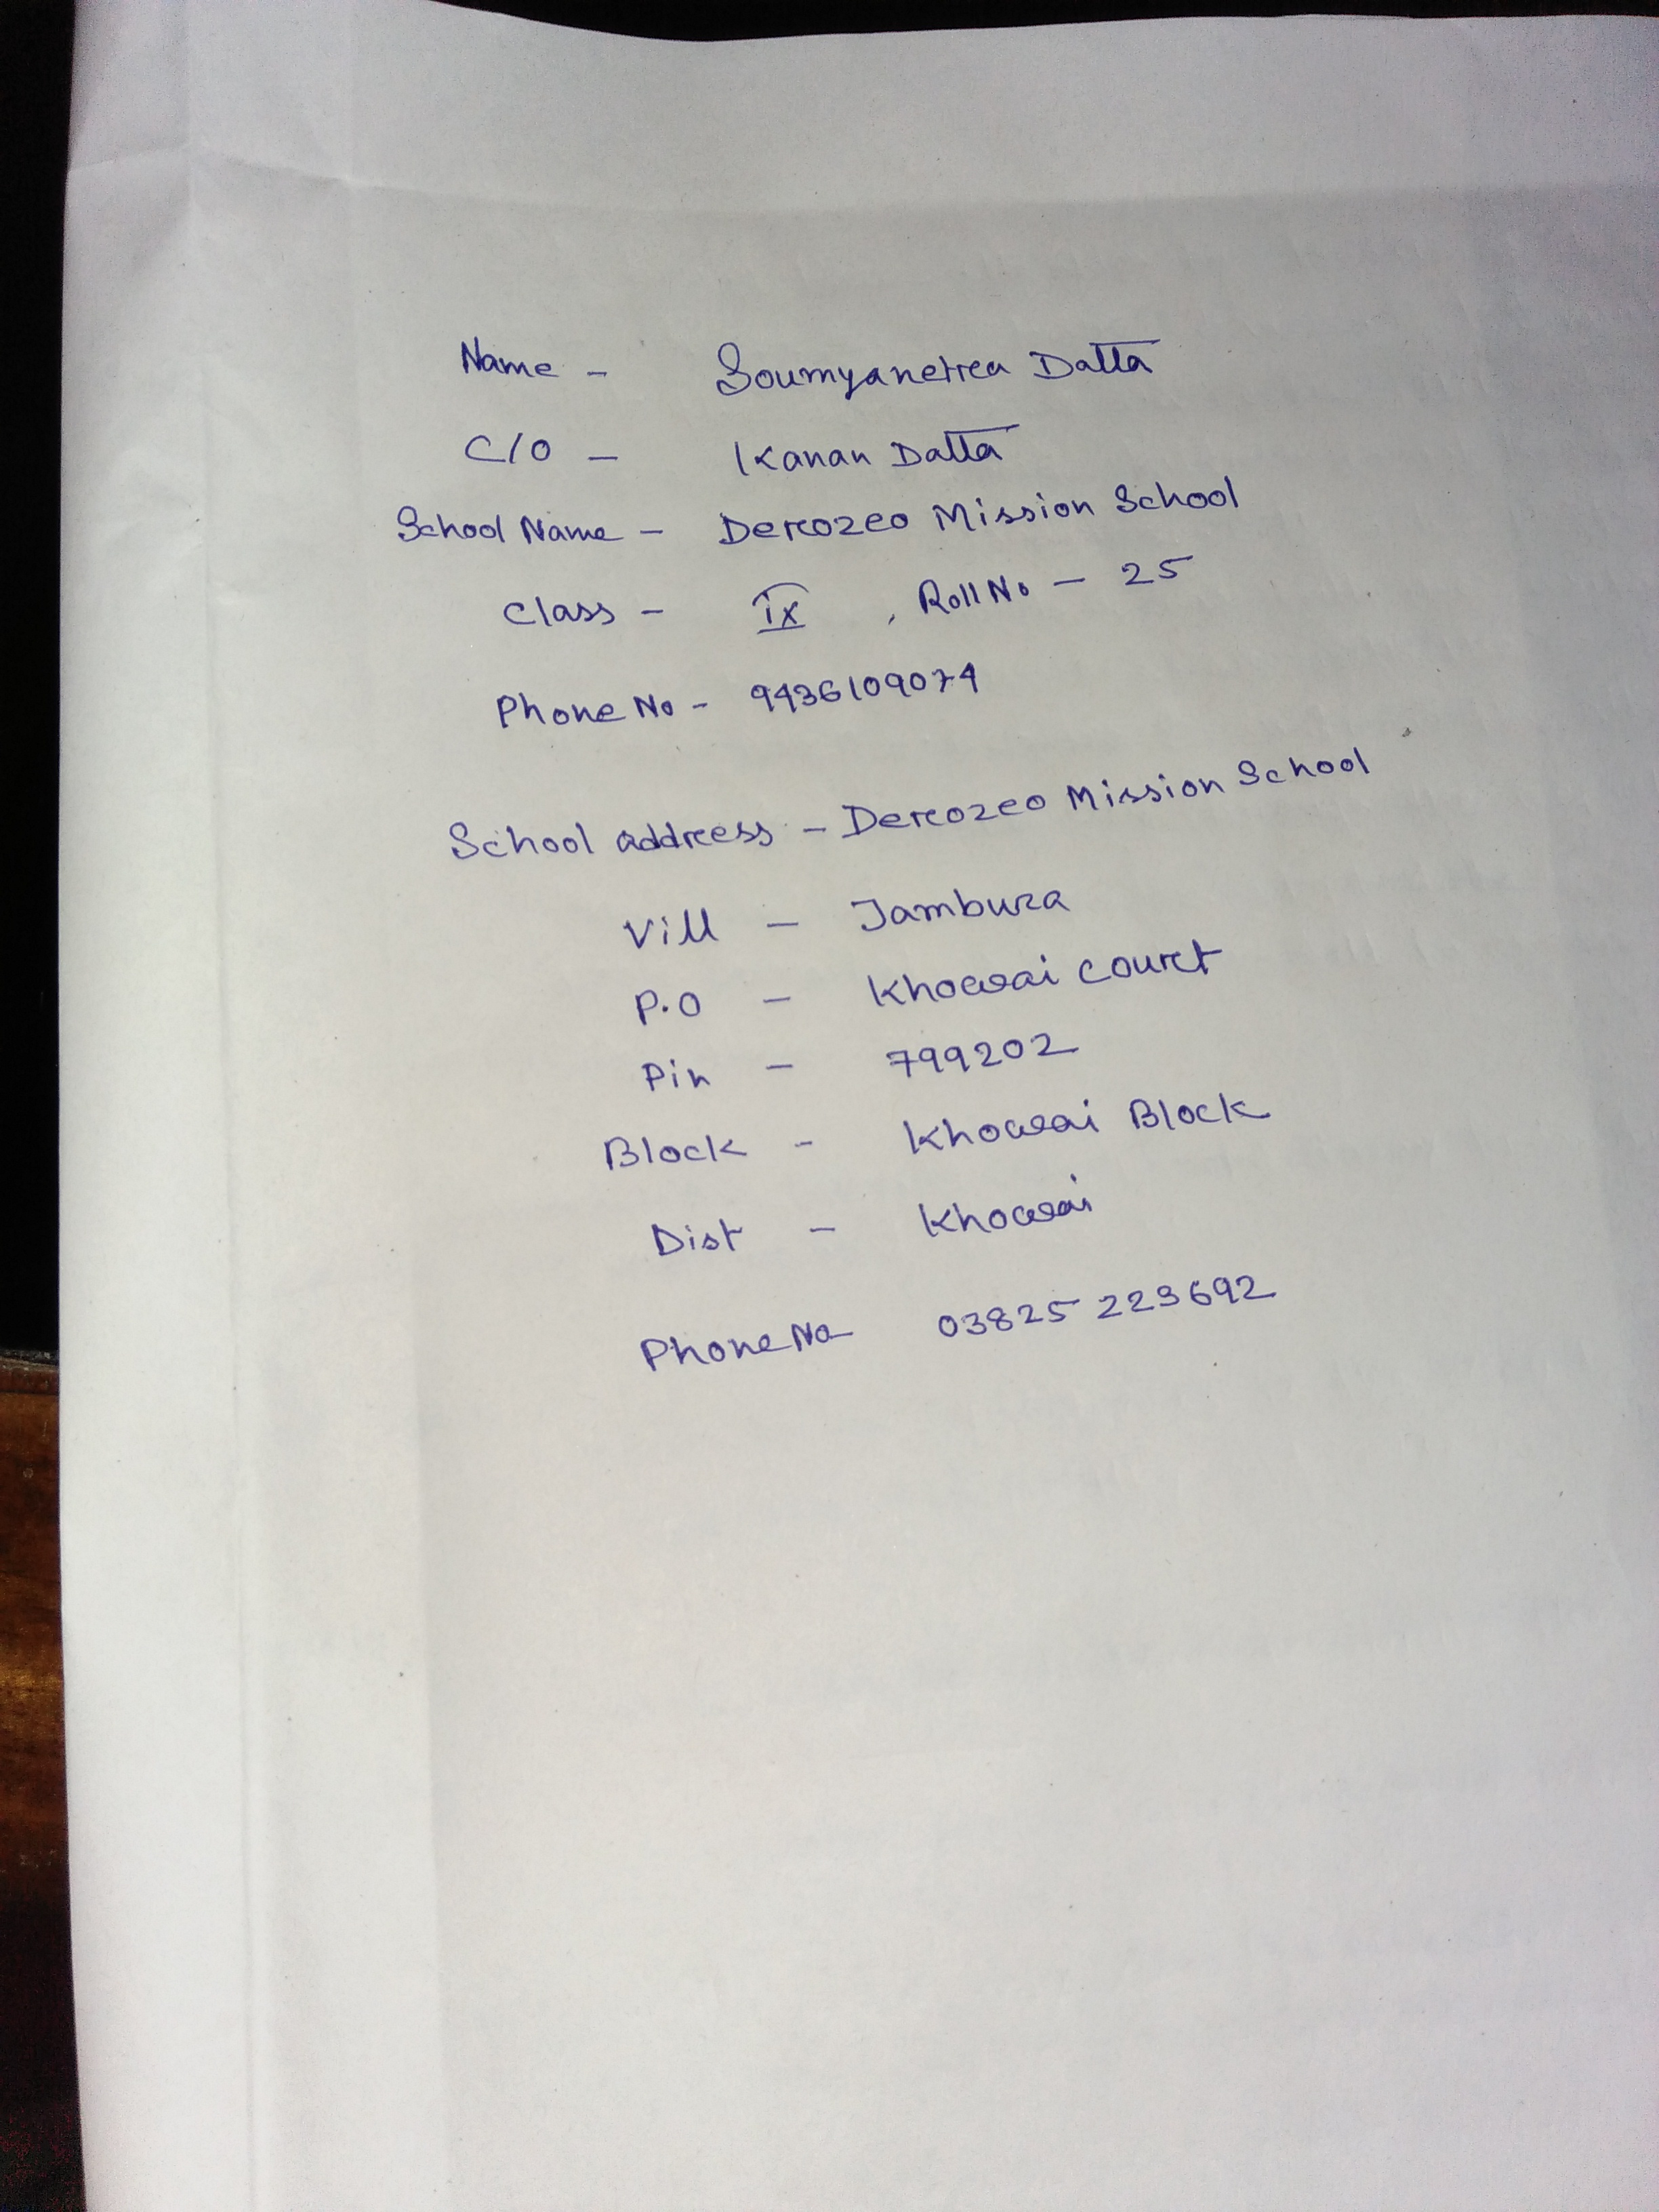 Name - Soumyanetra Datta
C/O - Kanan Datta
School Name - Derozeo Mission School
Class - IX , Roll No - 25
Phone No - 9436109074
School address - Derozeo Mission School
Vill - Jambura
P.O - Khowai Court
Pin - 799202
Block - Khowai Block
Dist - Khowai
Phone No 03825 223692